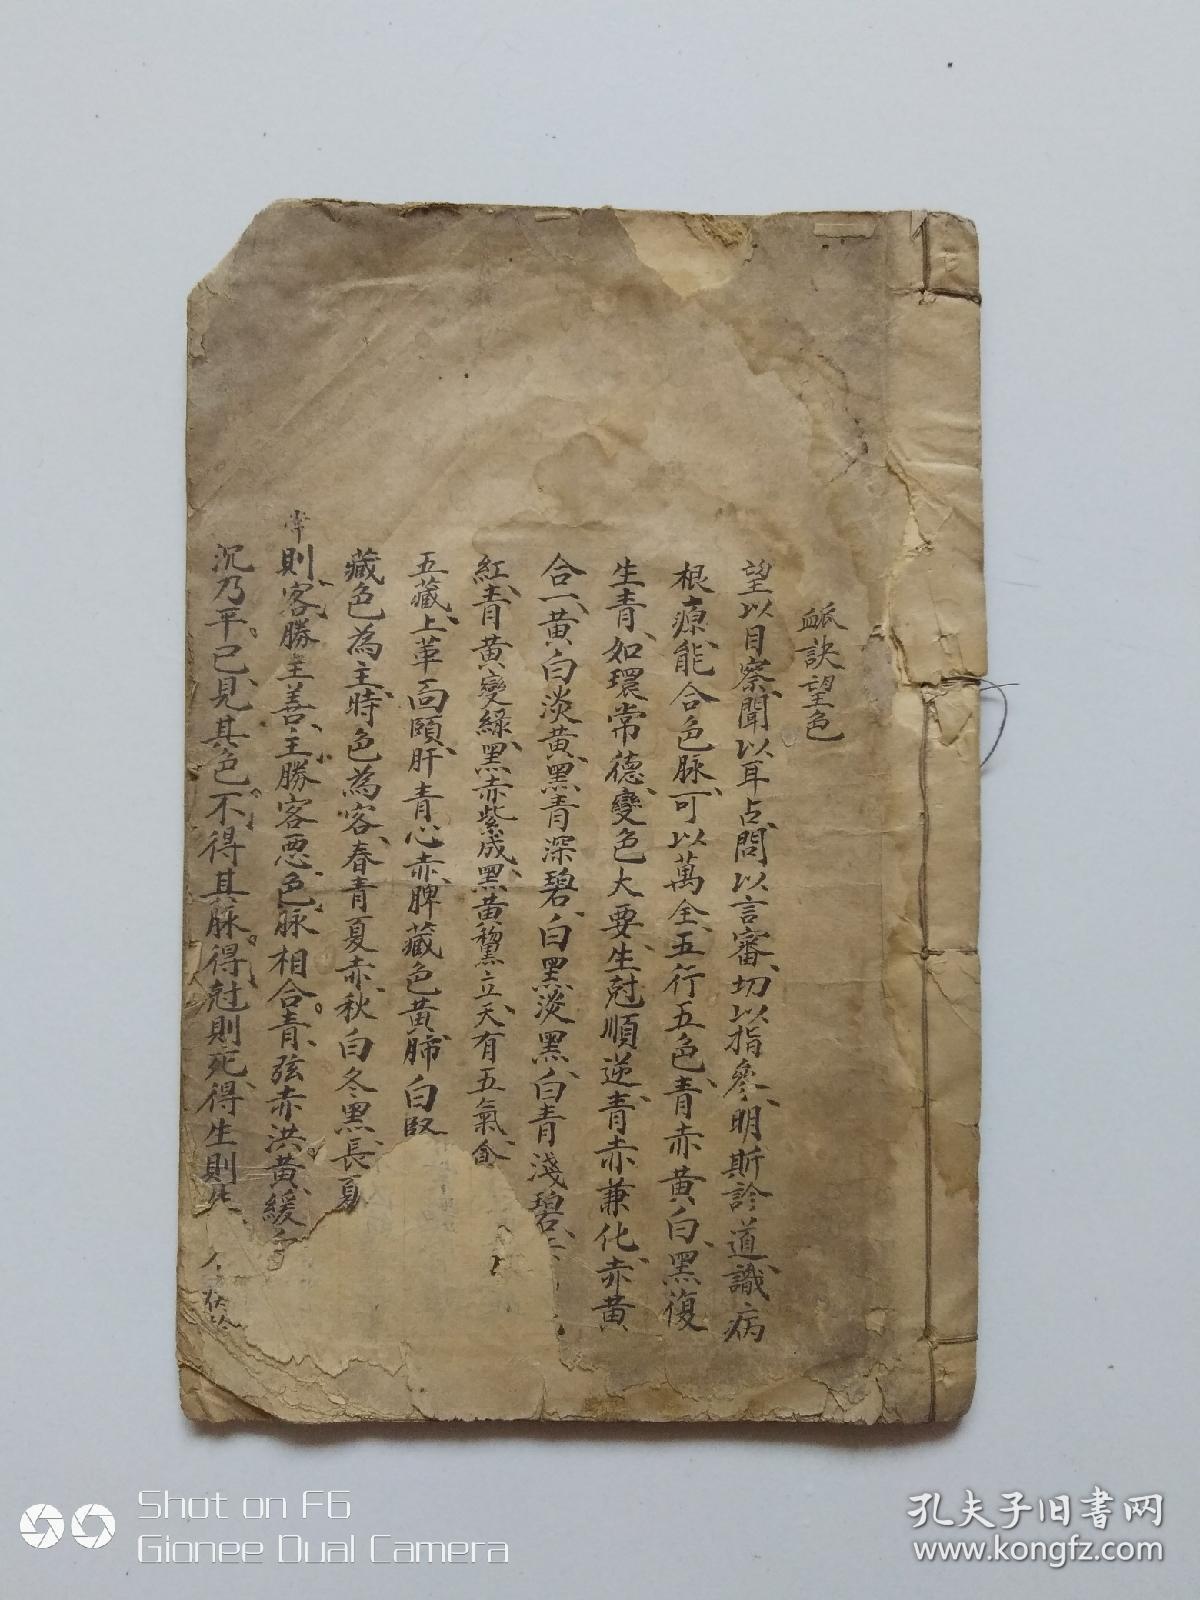 脈訣望色
望以目察、聞以耳占、問以言審、切以指參、明斯診道、識病
根源、能合色脉、可以萬全、五行五色、青赤黄白、黑復
生青、如環常德、變色大要、生尅順逆、青赤兼化、赤黄
合一、黄白淡黄、黑青深碧、白黑淡黑、白青淺碧、
紅、青黄變綠、黑赤紫成、黑黄黧立、天有五氣、食
五藏、上華面頤、肝青心赤、脾藏色黄、肺白腎
藏色為主、時色為客、春青夏赤、秋白冬黑、長夏
常則客勝主善、主勝客惡、色脉相合。青弦赤洪。黄緩
沉乃平。已見其色、不得其脉。得尅則死、得生則
Shot on F6
Gionee Dual Camera
孔夫子旧书网
www.kongfz.com